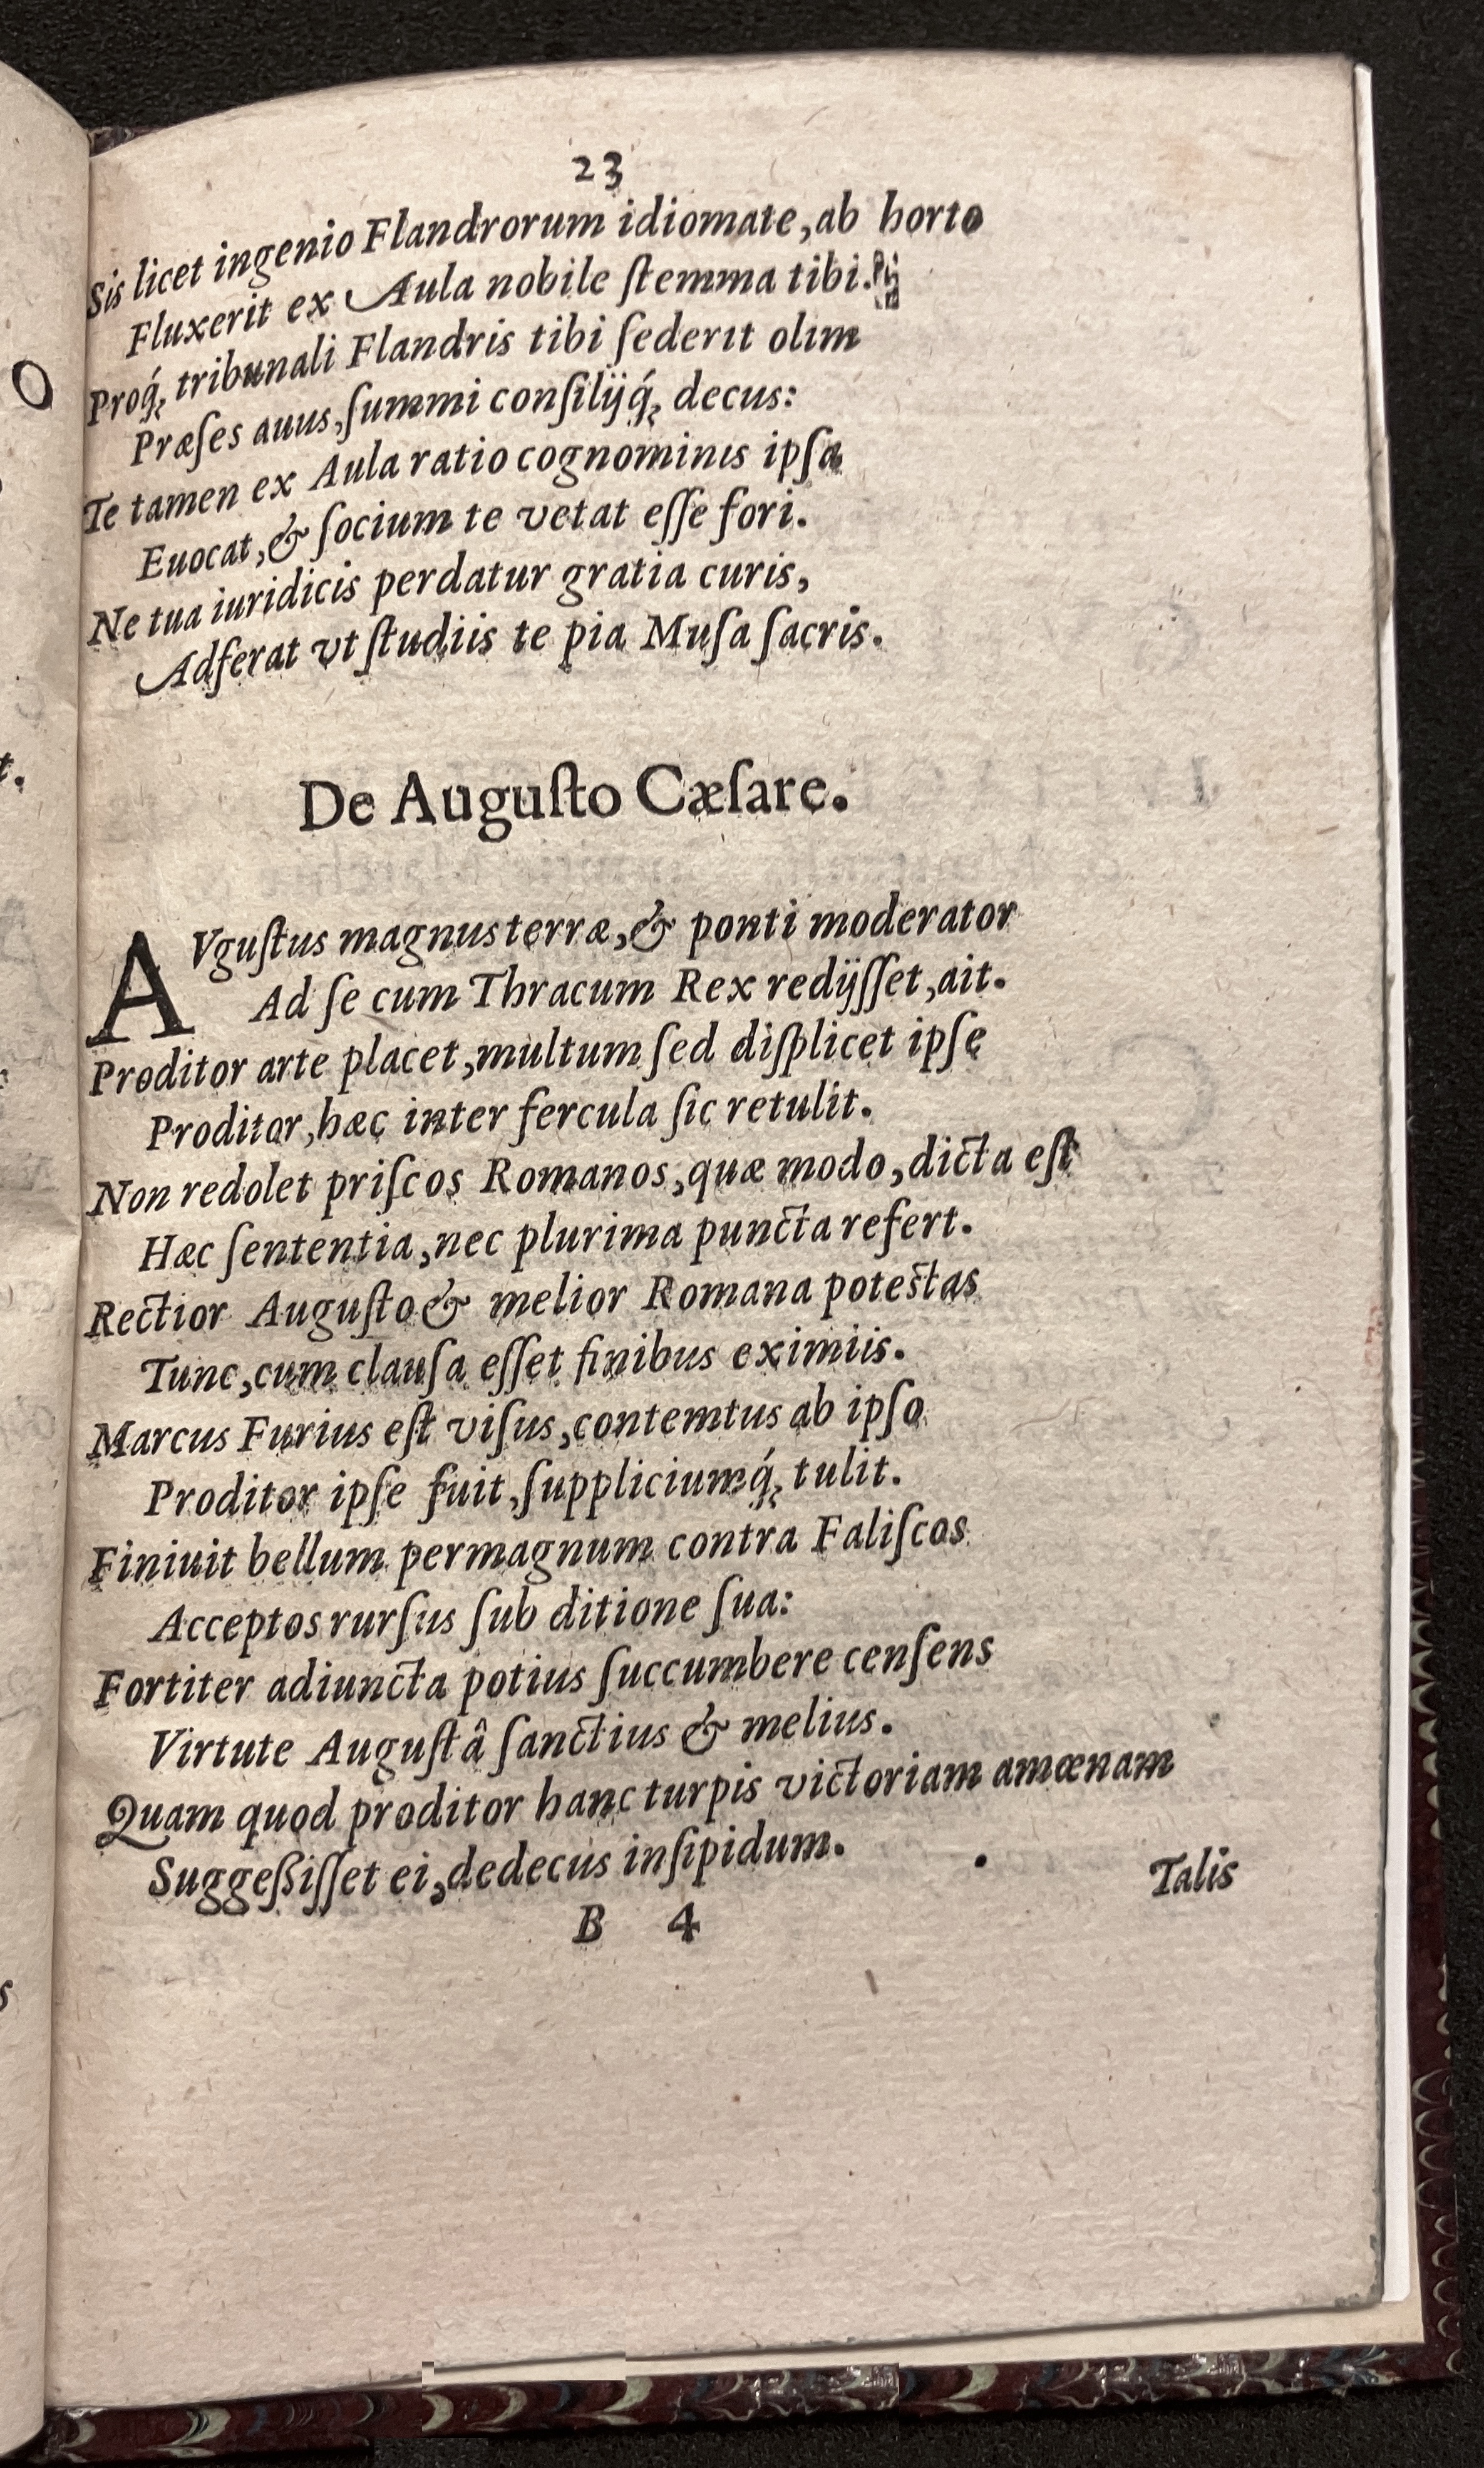 23
Sis licet ingenio Flandrorum idiomate, ab horto
Fluxerit ex Aula nobile ſtemma tibi.
Proq́ꝫ tribunali Flandris tibi ſederit olim
Præſes auus, ſummi conſilijq́ꝫ decus:
Te tamen ex Aula ratio cognominis ipſa
Euocat, & ſocium te vetat eſſe fori.
Ne tua iuridicis perdatur gratia curis,
Adferat vt ſtudiis te pia Muſa ſacris.
De Auguſto Cæſare.
AVguſtus magnus terræ, & ponti moderator
Ad ſe cum Thracum Rex redijſſet, ait.
Proditor arte placet, multum ſed diſplicet ipſe
Proditor, hæc inter fercula ſic retulit.
Non redolet priſcos Romanos, quæ modo, dicta eſt
Hæc ſententia, nec plurima puncta refert.
Rectior Auguſto & melior Romana poteſtas
Tunc, cum clauſa eſſet finibus eximiis.
Marcus Furius eſt viſus, contemtus ab ipſo
Proditor ipſe fuit, ſuppliciumq́ꝫ tulit.
Finiuit bellum permagnum contra Faliſcos
Acceptos rurſus ſub ditione ſua:
Fortiter adiuncta potius ſuccumbere cenſens
Virtute Auguſtâ ſanctius & melius.
Quam quod proditor hanc turpis victoriam amœnam
Suggeßiſſet ei, dedecus inſipidum.
B 4
Talis